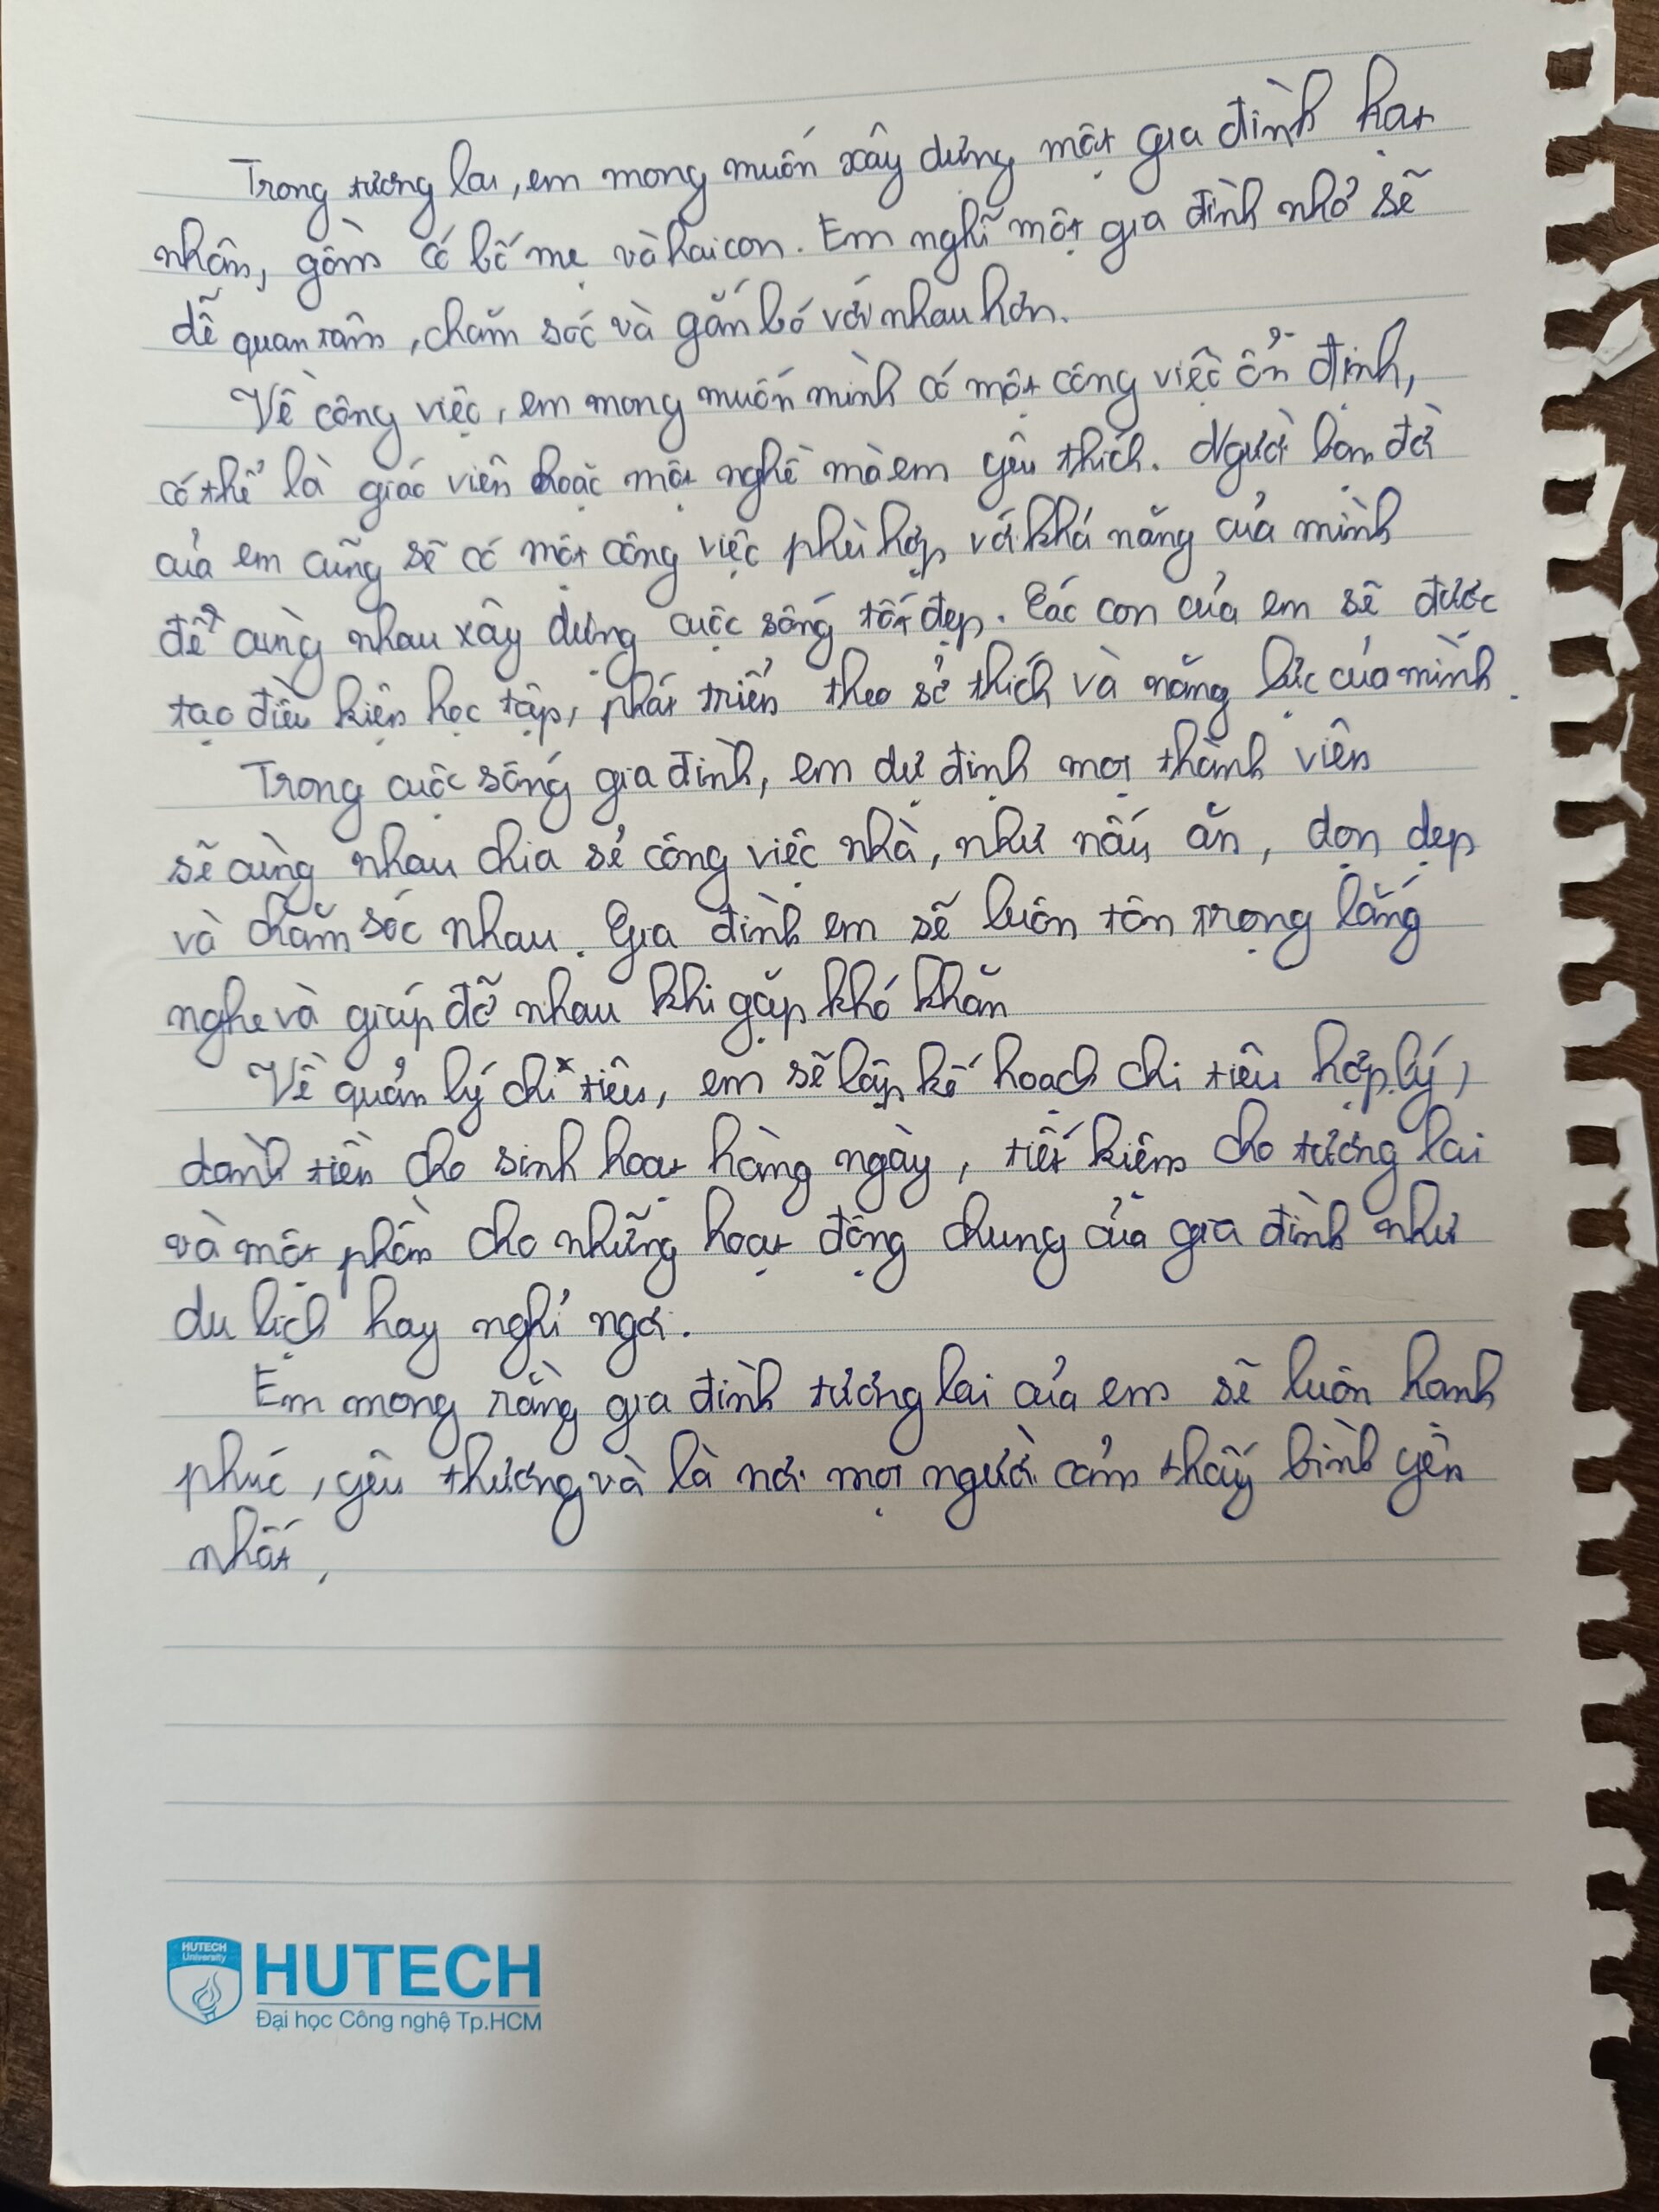 Trong tương lai, em mong muốn xây dựng một gia đình hạt
nhân, gồm có bố mẹ và hai con. Em nghĩ một gia đình nhỏ sẽ
dễ quan tâm, chăm sóc và gắn bó với nhau hơn.
Về công việc, em mong muốn mình có một công việc ổn định,
có thể là giáo viên hoặc một nghề mà em yêu thích. Người bạn đời
của em cũng sẽ có một công việc phù hợp với khả năng của mình
để cùng nhau xây dựng cuộc sống tốt đẹp. Các con của em sẽ được
tạo điều kiện học tập, phát triển theo sở thích và năng lực của mình.
Trong cuộc sống gia đình, em dự định mọi thành viên
sẽ cùng nhau chia sẻ công việc nhà, như nấu ăn, dọn dẹp
và chăm sóc nhau. Gia đình em sẽ luôn tôn trọng lắng
nghe và giúp đỡ nhau khi gặp khó khăn
Về quản lý chi tiêu, em sẽ lập kế hoạch chi tiêu hợp lý,
dành tiền cho sinh hoạt hàng ngày, tiết kiệm cho tương lai
và một phần cho những hoạt động chung của gia đình như
du lịch hay nghỉ ngơi.
Em mong rằng gia đình tương lai của em sẽ luôn hanh
phúc, yêu thương và là nơi mọi người cảm thấy bình yên
nhất,
HUTECH University
HUTECH
Đại học Công nghệ Tp.HCM